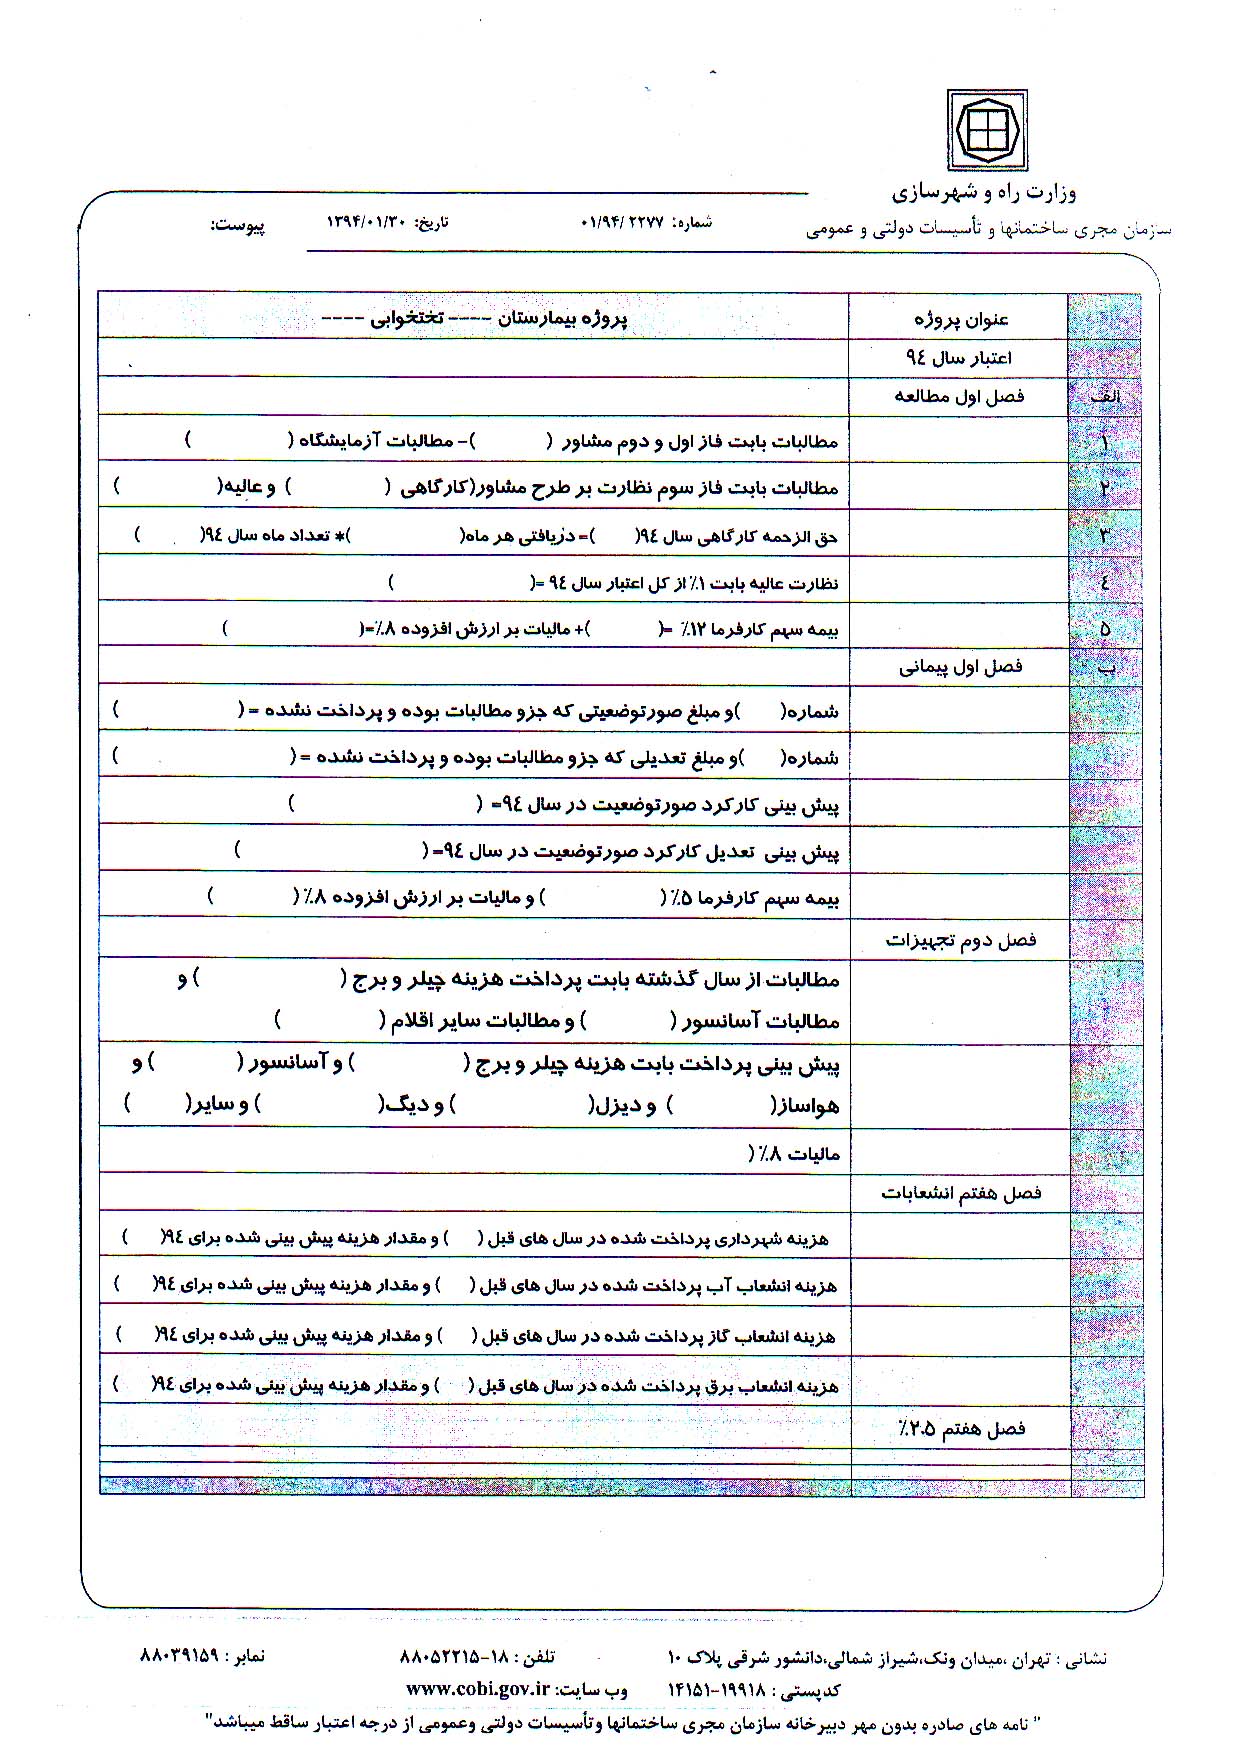 وزارت راه و شهرسازی
سازمان مجری ساختمانها و تأسیسات دولتی و عمومی
شماره: ۰۱/۹۴/۲۲۷۷
تاریخ: ۱۳۹۴/۰۱/۳۰
پیوست:
عنوان پروژه پروژه بیمارستان ---- تختخوابی ----
اعتبار سال ۹٤
الف فصل اول مطالعه
۱ مطالبات بابت فاز اول و دوم مشاور ( )- مطالبات آزمایشگاه ( )
۲ مطالبات بابت فاز سوم نظارت بر طرح مشاور(کارگاهی ( ) و عالیه( )
۳ حق الزحمه کارگاهی سال ۹٤( )= دریافتی هر ماه( )* تعداد ماه سال ۹٤( )
٤ نظارت عالیه بابت ۱٪ از کل اعتبار سال ۹٤ =( )
۵ بیمه سهم کارفرما ۱۲٪ =( )+ مالیات بر ارزش افزوده ۸٪=( )
ب فصل اول پیمانی
شماره( )و مبلغ صورتوضعیتی که جزو مطالبات بوده و پرداخت نشده = ( )
شماره( )و مبلغ تعدیلی که جزو مطالبات بوده و پرداخت نشده = ( )
پیش بینی کارکرد صورتوضعیت در سال ۹٤= ( )
پیش بینی تعدیل کارکرد صورتوضعیت در سال ۹٤=( )
بیمه سهم کارفرما ۵٪( ) و مالیات بر ارزش افزوده ۸٪( )
فصل دوم تجهیزات
مطالبات از سال گذشته بابت پرداخت هزینه چیلر و برج ( ) و
مطالبات آسانسور ( ) و مطالبات سایر اقلام ( )
پیش بینی پرداخت بابت هزینه چیلر و برج ( ) و آسانسور ( ) و
هواساز( ) و دیزل( ) و دیگ( ) و سایر( )
مالیات ۸٪ (
فصل هفتم انشعابات
هزینه شهرداری پرداخت شده در سال های قبل ( ) و مقدار هزینه پیش بینی شده برای ۹٤( )
هزینه انشعاب آب پرداخت شده در سال های قبل ( ) و مقدار هزینه پیش بینی شده برای ۹٤( )
هزینه انشعاب گاز پرداخت شده در سال های قبل ( ) و مقدار هزینه پیش بینی شده برای ۹٤( )
هزینه انشعاب برق پرداخت شده در سال های قبل ( ) و مقدار هزینه پیش بینی شده برای ۹٤( )
فصل هفتم ۲.۵٪
نشانی : تهران ،میدان ونک،شیراز شمالی،دانشور شرقی پلاک ۱۰ تلفن : ۱۸-۸۸۰۵۲۲۱۵ نمابر : ۸۸۰۳۹۱۵۹
کدپستی : ۱۹۹۱۸-۱۴۱۵۱ وب سایت: www.cobi.gov.ir
" نامه های صادره بدون مهر دبیرخانه سازمان مجری ساختمانها و تأسیسات دولتی وعمومی از درجه اعتبار ساقط میباشد"